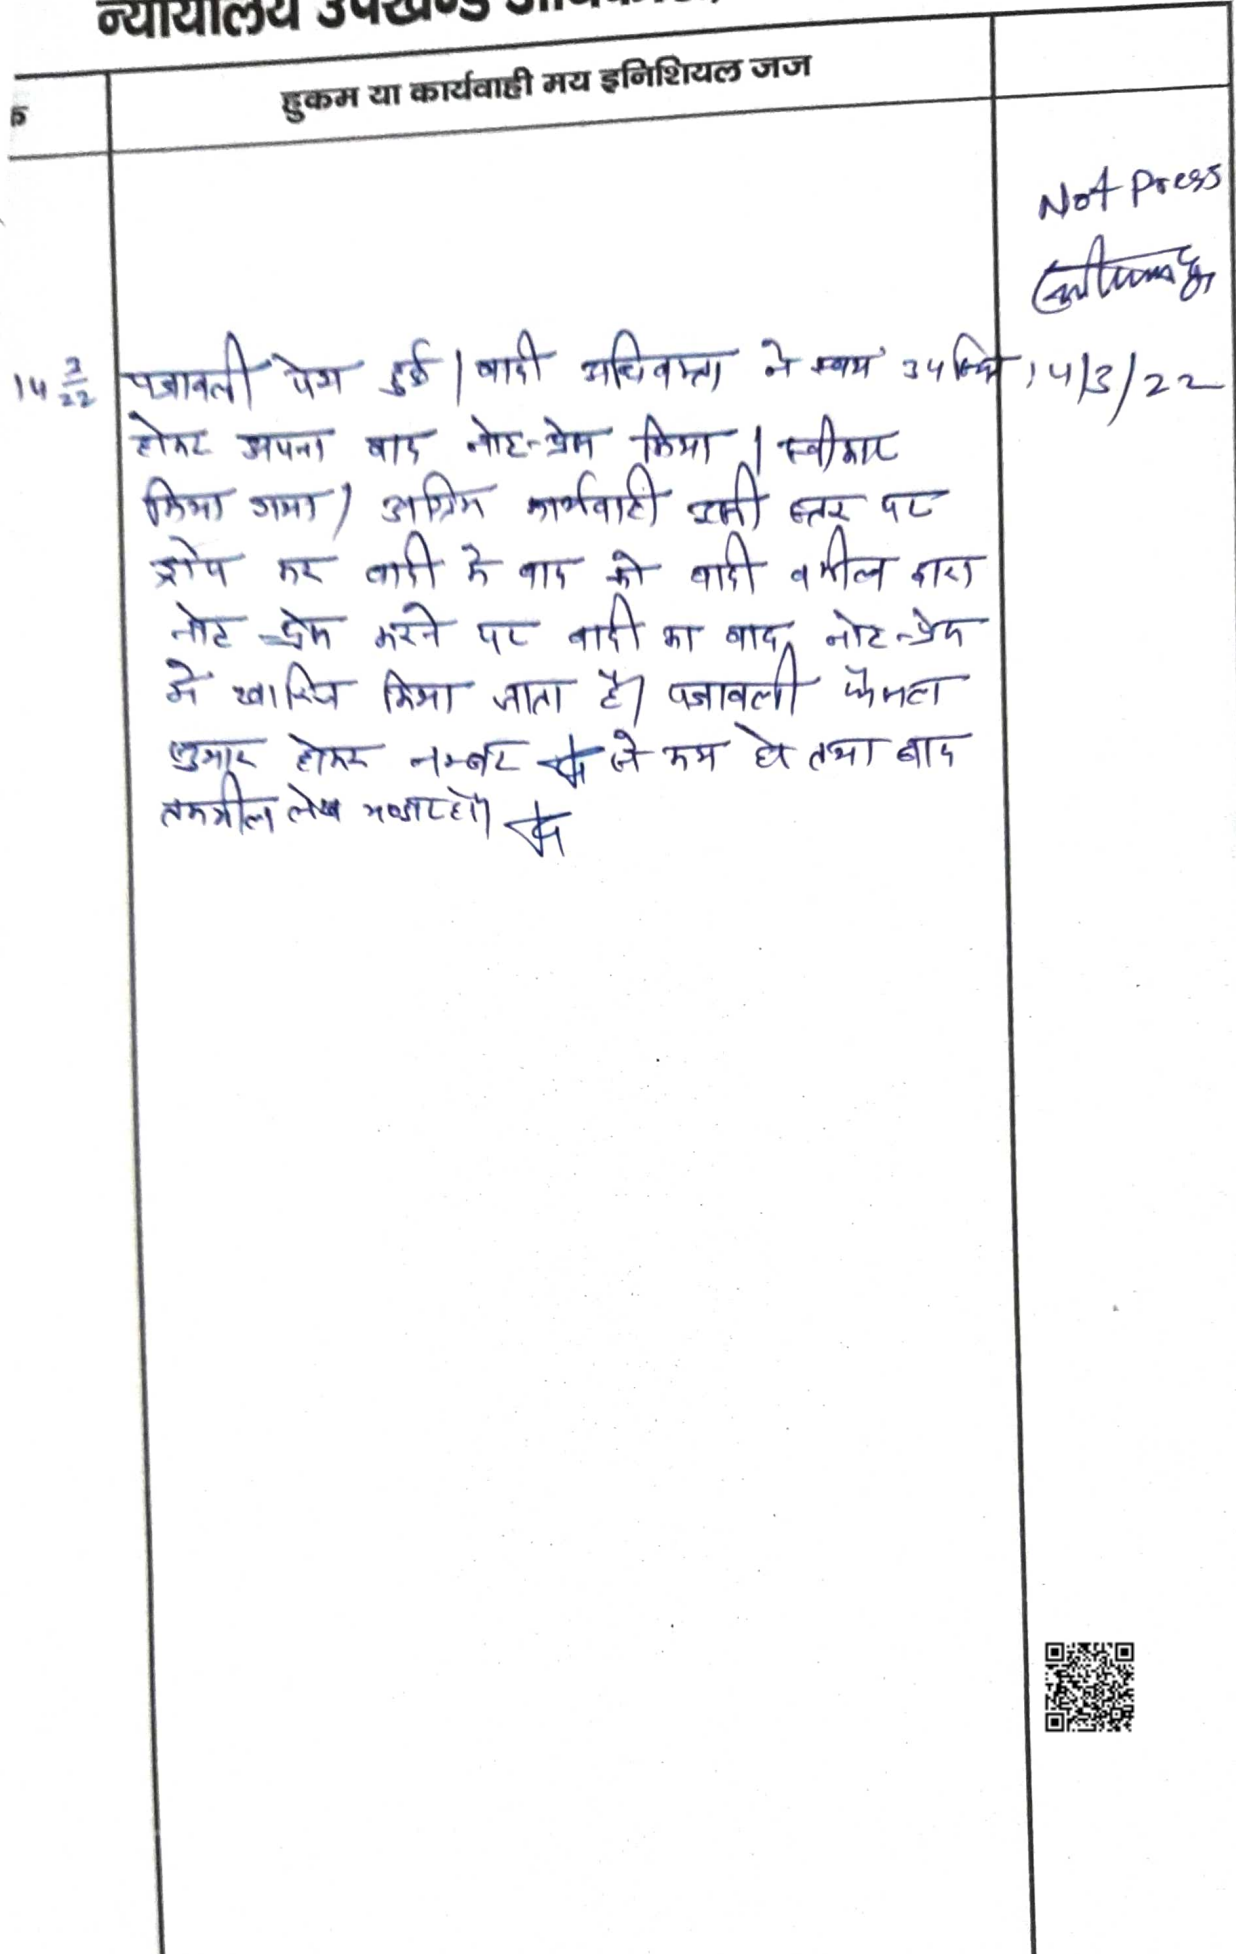 न्यायालय उपखण्ड
हुकम या कार्यवाही मय इनिशियल जज
Not Press
14/3/22
14 3/22 पत्रावली पेश हुई। वादी अधिवक्ता ने स्वयं उपस्थित
होकर अपना वाद नोट-प्रेस किया। स्वीकार
किया गया। अग्रिम कार्यवाही इसी स्तर पर
ड्रोप कर वादी के वाद को वादी वकील द्वारा
नोट-प्रेस करने पर वादी का वाद नोट-प्रेस
में खारिज किया जाता है। पत्रावली फैसला
शुमार होकर नम्बर से कम हो तथा बाद
तकमील लेख भण्डार हो।